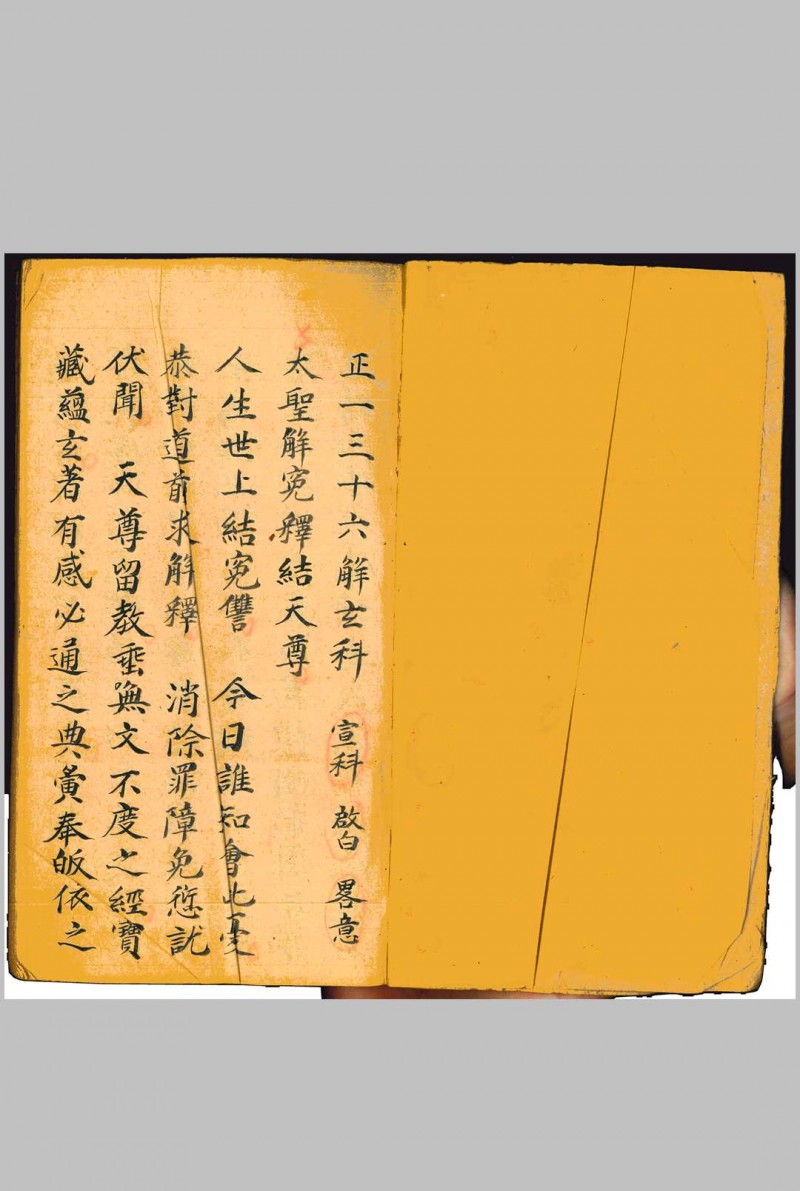 正一三十六解玄科　宣科　啟白　畧意
太聖解冤釋結天尊
人生世上結冤讐　今日誰知會此憂
恭對道前求解釋　消除罪障免愆訧
伏聞　天尊留教垂無文不度之經寶
藏蘊玄著有感必通之典黃奉皈依之